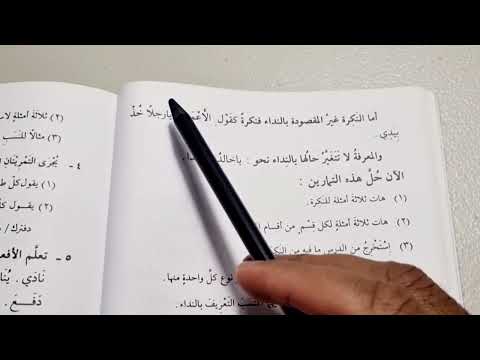 أما النكرة غيرُ المقصودة بالنداء فنكرةٌ كقول الأَعْمَـ يارجلًا خُذْ
بِيدِي .
والمعرفةُ لا تتغيَّرُ حالُها بالنداء نحو : ياخالدُ
الآن حُلَّ هذه التمارين :
(١) هات ثلاثة أمثلة للنكرة.
(٢) هات ثلاثة أمثلةٍ لكل قسْم من أقسام
(٣) اِسْتَخْرِجْ من الدرس ما فيه من
نوع كلِّ واحدةٍ منها.
التعريفَ بالنداء.
(٢) ثلاثة أمثلةٍ
(٣) مثالًا
٤ - يُجْرَى التمرينانِ
(١) يقول كلُّ
(٢) يقــول
دفترك /
٥ - تعلَّم
نَادَى .
دَفَعَ .